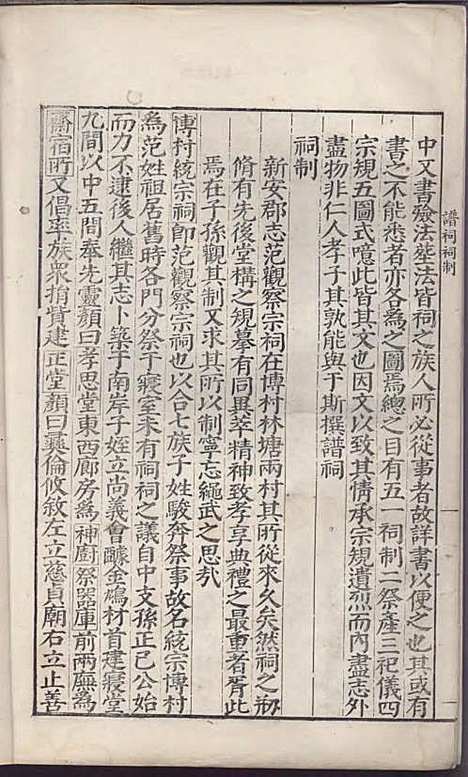 譜祠祠制
中又書瘞法塋法皆祠之族人所必從事者故詳書以便之也其或有
書之不能悉者亦各為之圖焉總之目有五一祠制二祭產三祀儀四
宗規五圖式噫此皆其文也因文以致其情承宗規遺烈而內盡志外
盡物非仁人孝子其孰能與于斯撰譜祠
祠制
新安郡志范觀察宗祠在博村林塘兩村其所從來久矣然祠之剏
脩有先後堂構之規摹有同異萃精神致孝享典禮之最重者胥此
焉在子孫觀其制又求其所以制寧忘繩武之思哉
博村統宗祠即范觀察宗祠也以合七族子姓駿奔祭事故名統宗博村
為范姓祖居舊時各門分祭于寢室未有祠祠之議自中支孫正己公始
而力不逮後人繼其志卜築于南岸子姪立尚義會醵金鳩材首建寢堂
九間以中五間奉先靈顏曰孝思堂東西廊房為神廚祭器庫前兩廡為
齋宿所又倡率族衆捐貲建正堂顏曰彞倫攸敘左立慈貞廟右立止善